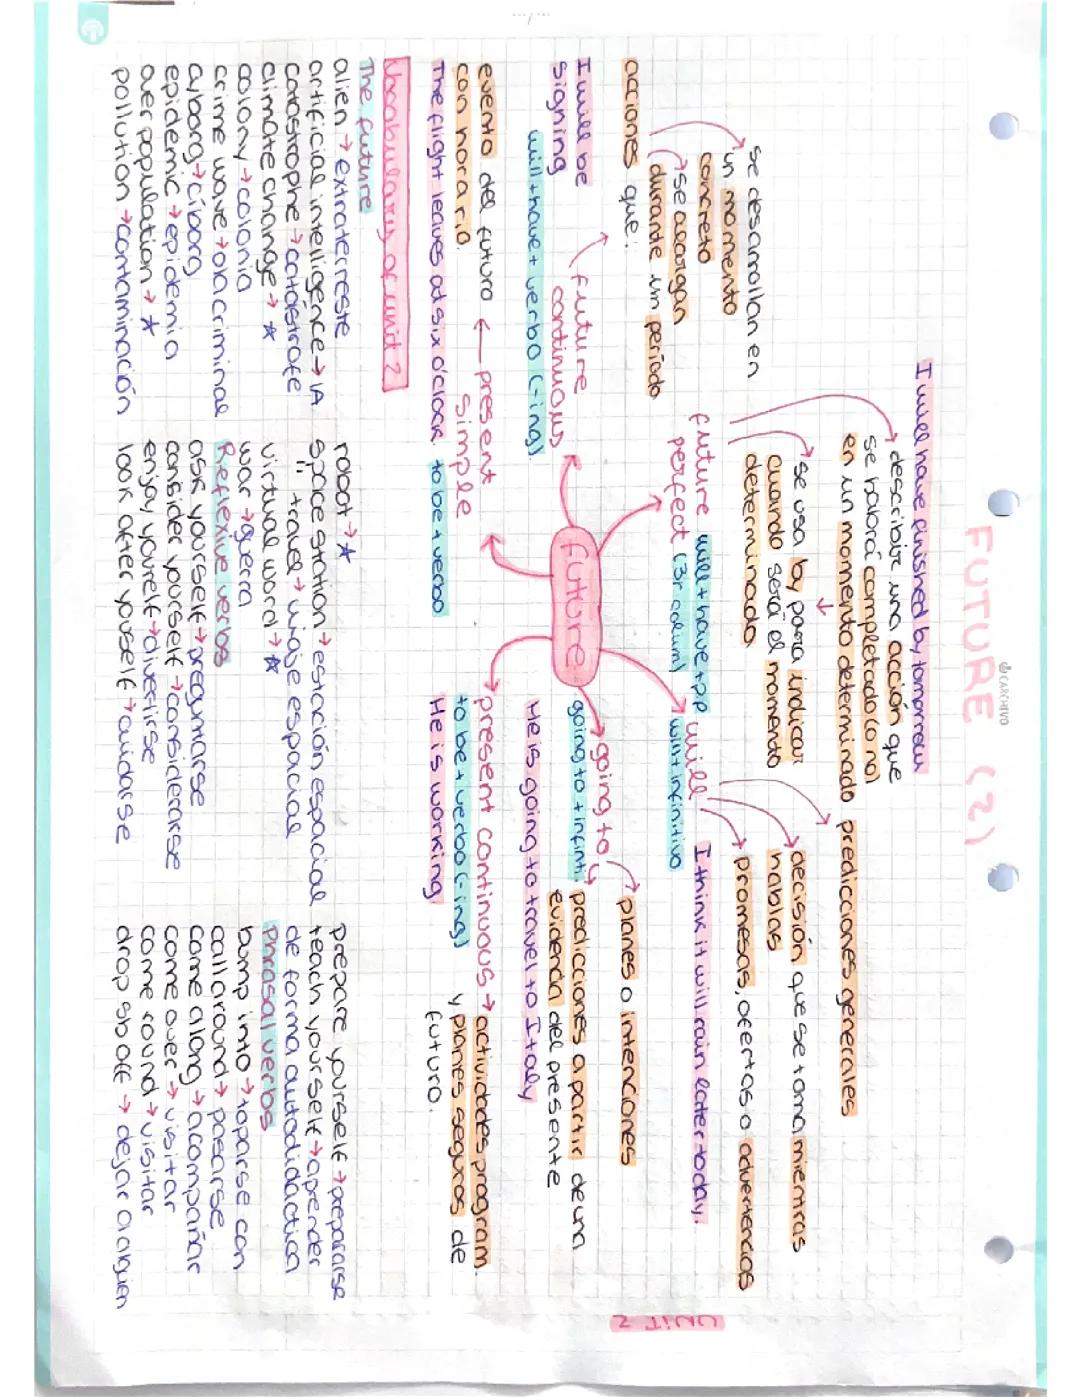 CARCHIVO
FUTURE (2)
UNIT 2
I will have finished by tomorrow
describir una acción que
se habrá completado (o no)
en un momento determinado
se usa by para indicar
cuando será el momento
determinado
future
perfect
will + have + p.p
(3r colum)
se desarrollan en
un momento
concreto
se alargan
durante un período
acciones que:
future
continuous
I will be
signing
will + have + verbo (-ing)
predicciones generales
decisión que se toma mientras
hablas
promesas, ofertas o advertencias
will
will + infinitivo
I think it will rain later today.
future
going to
going to + infinti.
planes o intenciones
predicciones a partir de una
evidencia del presente
He is going to travel to Italy
present continuous → actividades program.
y planes seguros de
futuro.
to be + verbo (-ing)
He is working
present
simple
evento del futuro
con horario.
The flight leaves at six o'clock
to be + verbo
Vocabulary of unit 2
The future
alien → extraterreste
artificial intelligence → IA
catastrophe → catástrofe
climate change → ☆
colony → colonia
crime wave → ola criminal
cyborg → cíborg
epidemic → epidemia
overpopulation → ☆
pollution → contaminación
robot → ☆
space station → estación espacial
" travel → viaje espacial
virtual word → ☆
war → guerra
Reflexive verbs
ask yourself → preguntarse
consider yourself → considerarse
enjoy yourelf → divertirse
look after youself → cuidarse
prepare yourself → prepararse
teach yourself → aprender
de forma autodidactica
phrasal verbs
bump into → toparse con
call around → pasarse
came along → acompañar
come over → visitar
come round → visitar
drop sb off → dejar a alguien